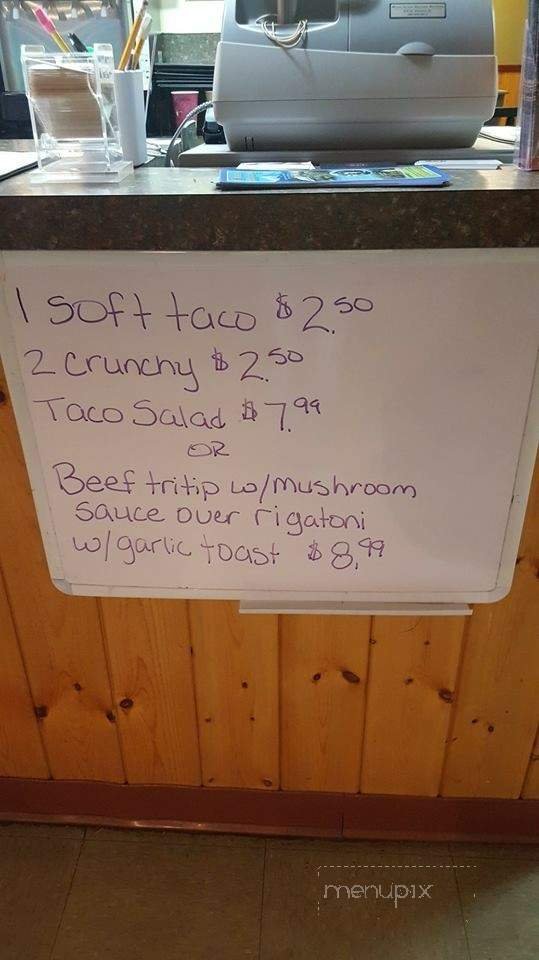 1 soft taco $2.50
2 crunchy $2.50
Taco Salad $7.99
OR
Beef tritip w/mushroom
sauce over rigatoni
w/garlic toast $8.99
menupix